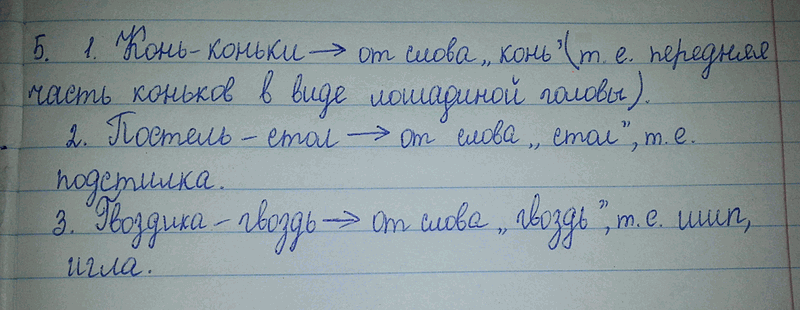 Б. 1. Конь-коньки → от слова „конь" (т.е. передняя
часть коньков в виде лошадиной головы).
2. Постель - стол → от слова „стол", т.е.
подстилка.
3. Гвоздика - гвоздь → от слова „гвоздь", т.е. шип,
игла.